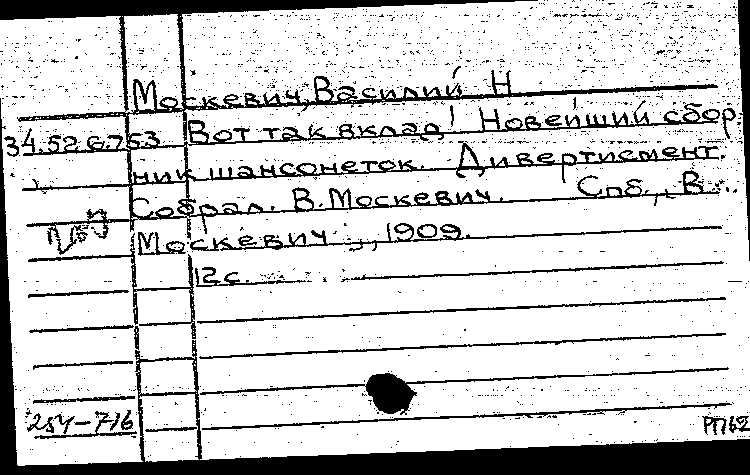 Москевич, Василий Н
34.52.6.753 Вот так вклад! Новейший сбор
ник шансонеток. Дивертисмент.
Собрал. В. Москевич. Спб., В.
Москевич, 1909.
12 с.
254-716